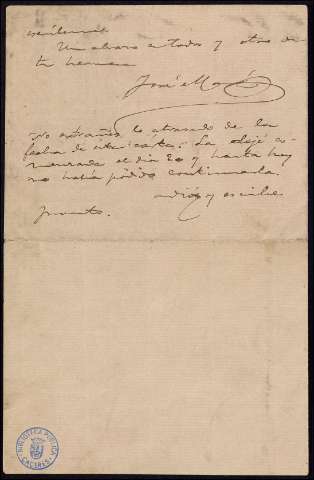 Un abrazo a todos y otro de
tu hermano
José M
No extrañes lo atrasado de la
fecha de esta carta. La dejé co-
menzada el dia 20 y hasta hoy
no habia podido continuarla.
Adiós y escribe
pronto.
BIBLIOTECA PUBLICA
CACERES